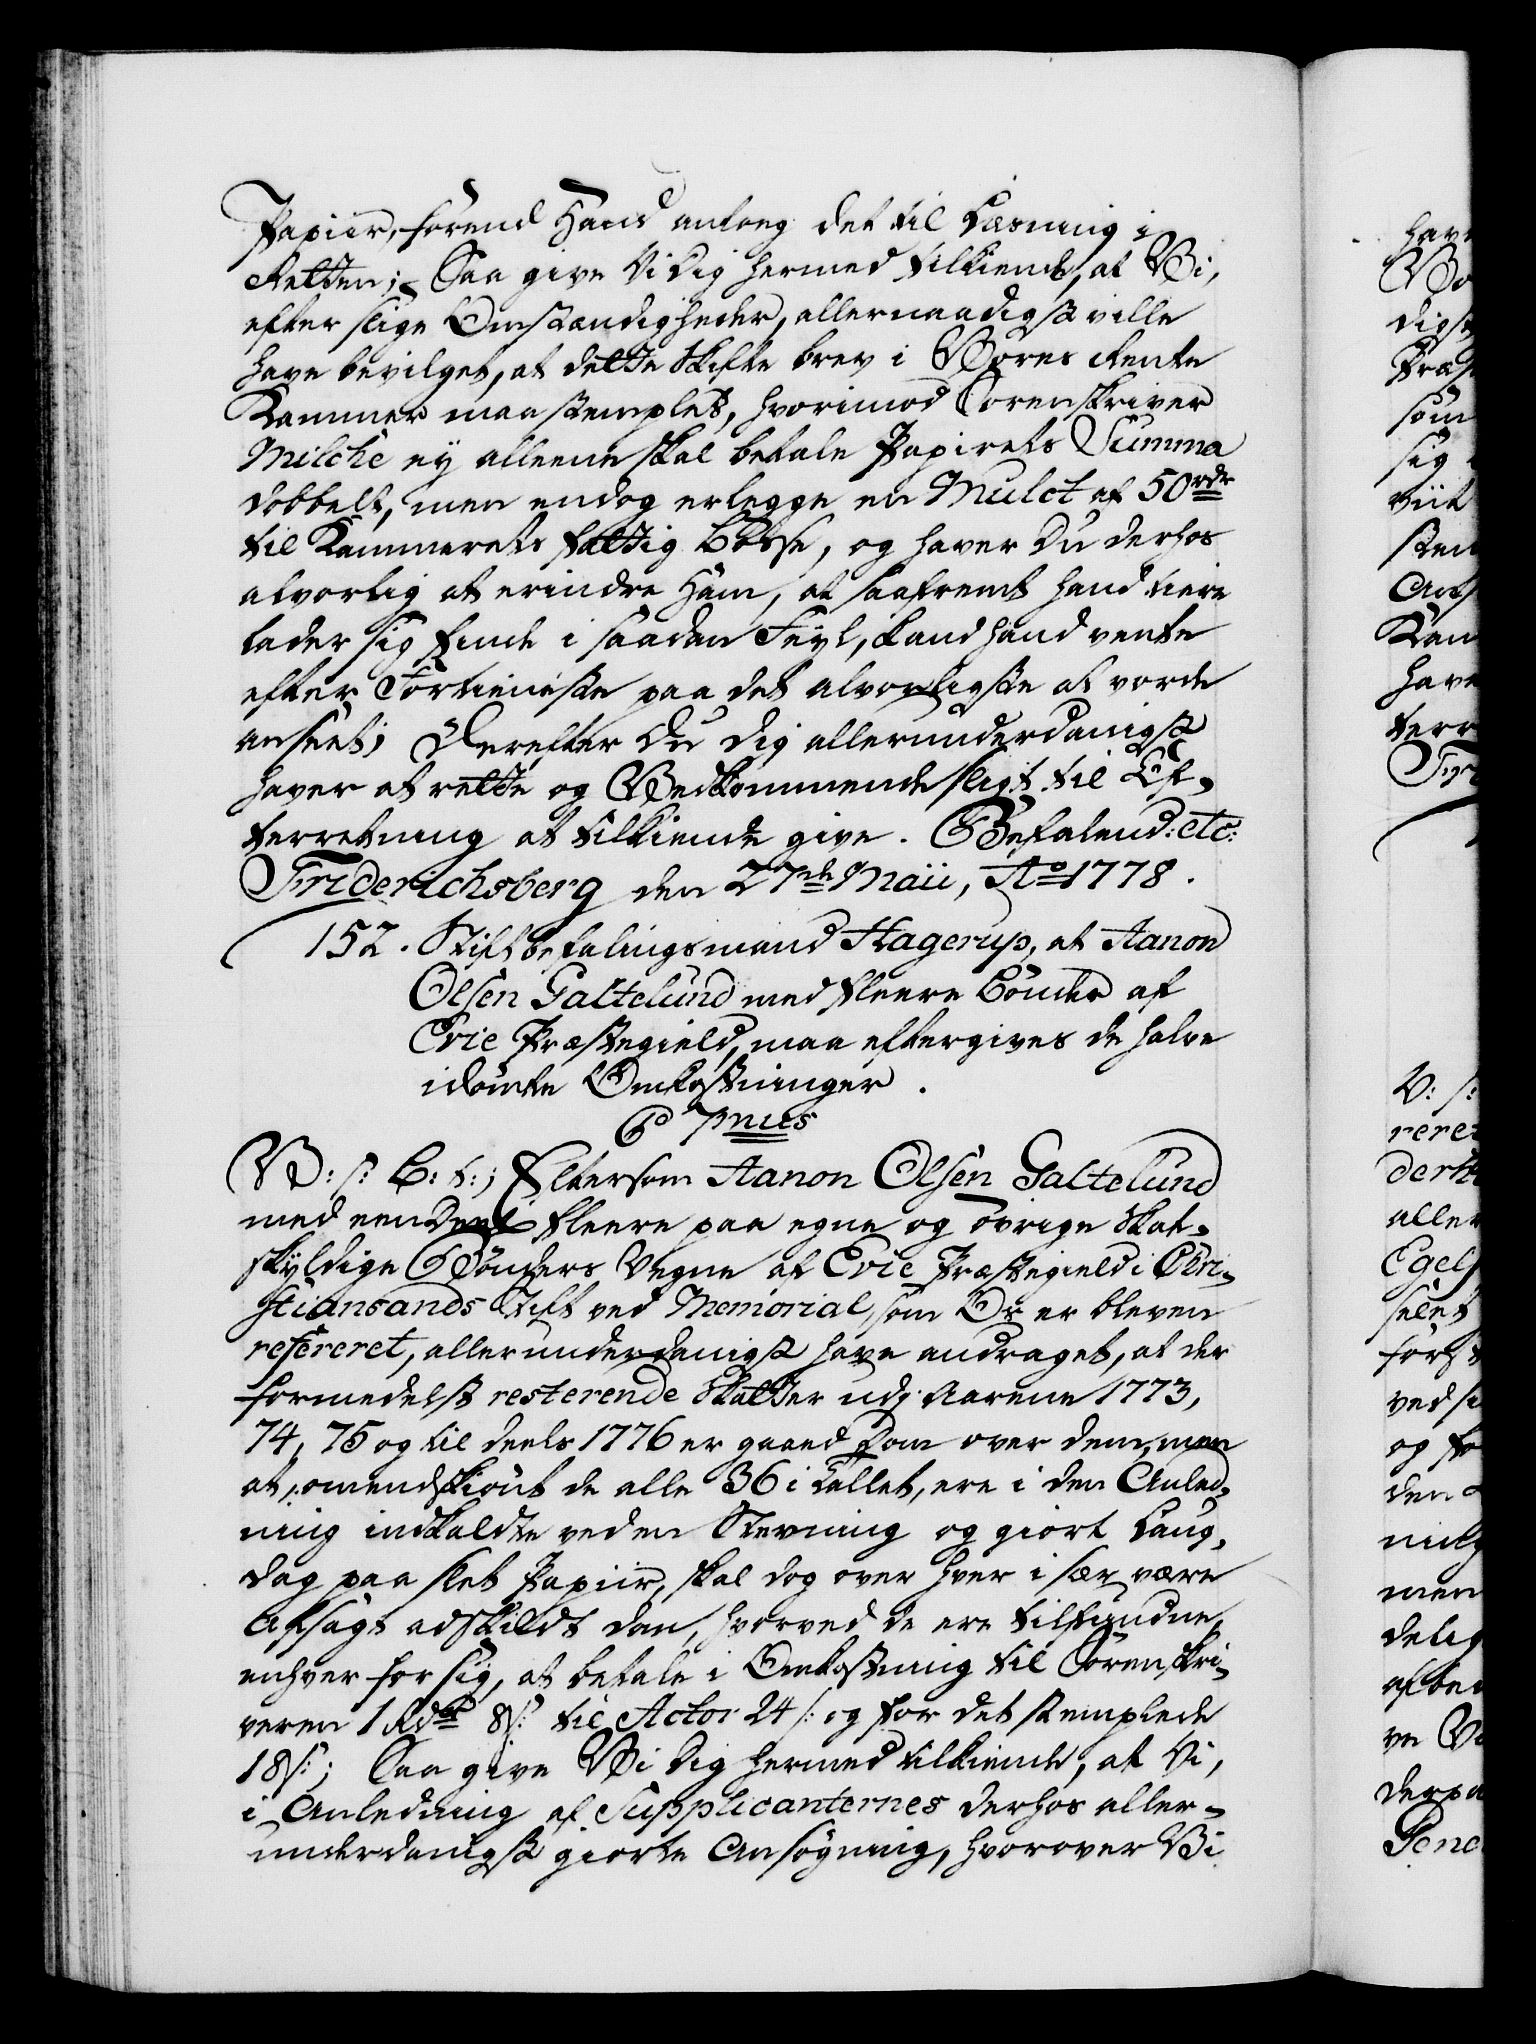 Papiir, førend Hand antog det til Læsning i
Retten; Saa give Vi Dig hermed tilkiende, at Vi,
efter slige Omstændigheder, allernaadigst ville
have bevilget, at dette Skifte brev i Vores Rente
Kammer maa stemples, hvorimod Sorenskriver
Milche ey alleene skal betale Papirets Summa
dobbelt, men endog erlegge en Mulct af 50 rdr
til Kammerets fattig Bøsse, og haver Du derhos
alvorlig at erindre Ham, at saafremt hand tiere
lader sig finde i saadan Feyl, kand hand vente
efter Fortieneste paa det alvorligste at vorde
anseet; Derefter Du Dig allerunderdanigst
haver at rette og Vedkommende sligt til Ef-
terretning at tilkiende give. Befalend: etc:
Friderichsberg den 27de Maii, Ao 1778.
152. Stiftbefalingsmand Hagerup, at Aanon
Olsen Galtelund med fleere Bønder af
Evie Præstegield, maa eftergives de halve
idømte Omkostninger.
C 7mus
V: s: B: t:; Eftersom Aanon Olsen Galtelund
med een Deel fleere paa egne og øvrige Skat-
skyldige Bønders Vegne af Evie Præstegield i Chri-
stiansands Stift ved Memorial, som Os er bleven
refereret, allerunderdanigst have andraget, at der
formedelst resterende Skatter udj Aarene 1773,
74, 75 og til deels 1776 er gaaed Dom over dem, men
at, omendskiønt de alle 36 i Tallet, ere i den Anled-
ning indkaldte ved en Stevning og giort Laug-
dag paa slet Papiir, skal dog over hver i sær være
afsagt adskildt Dom, hvorved de ere tilfundne,
enhver for sig, at betale i Omkostning til Sorenskri-
veren 1 Rdr 8 s: til Actor 24 s: og for det stemplede
18 s:; Saa give Vi Dig hermed tilkiende, at Vi,
i Anledning af Supplicanternes derhos aller-
underdanigst giorte Ansøgning, hvorover Vi